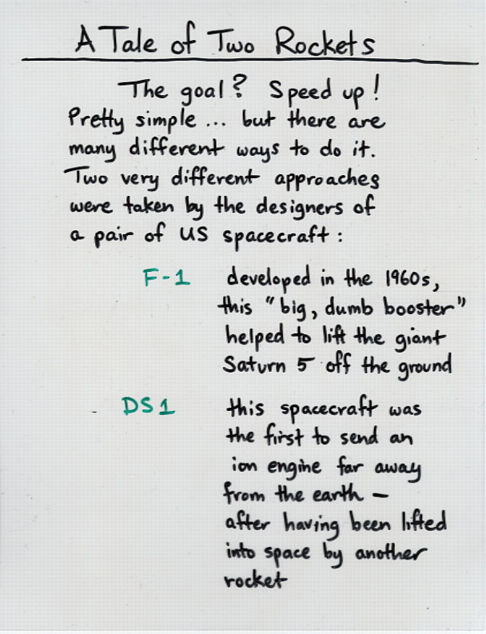 A Tale of Two Rockets
The goal? Speed up!
Pretty simple ... but there are
many different ways to do it.
Two very different approaches
were taken by the designers of
a pair of US spacecraft:
F-1 developed in the 1960s,
this "big, dumb booster"
helped to lift the giant
Saturn 5 off the ground
DS1 this spacecraft was
the first to send an
ion engine far away
from the earth -
after having been lifted
into space by another
rocket